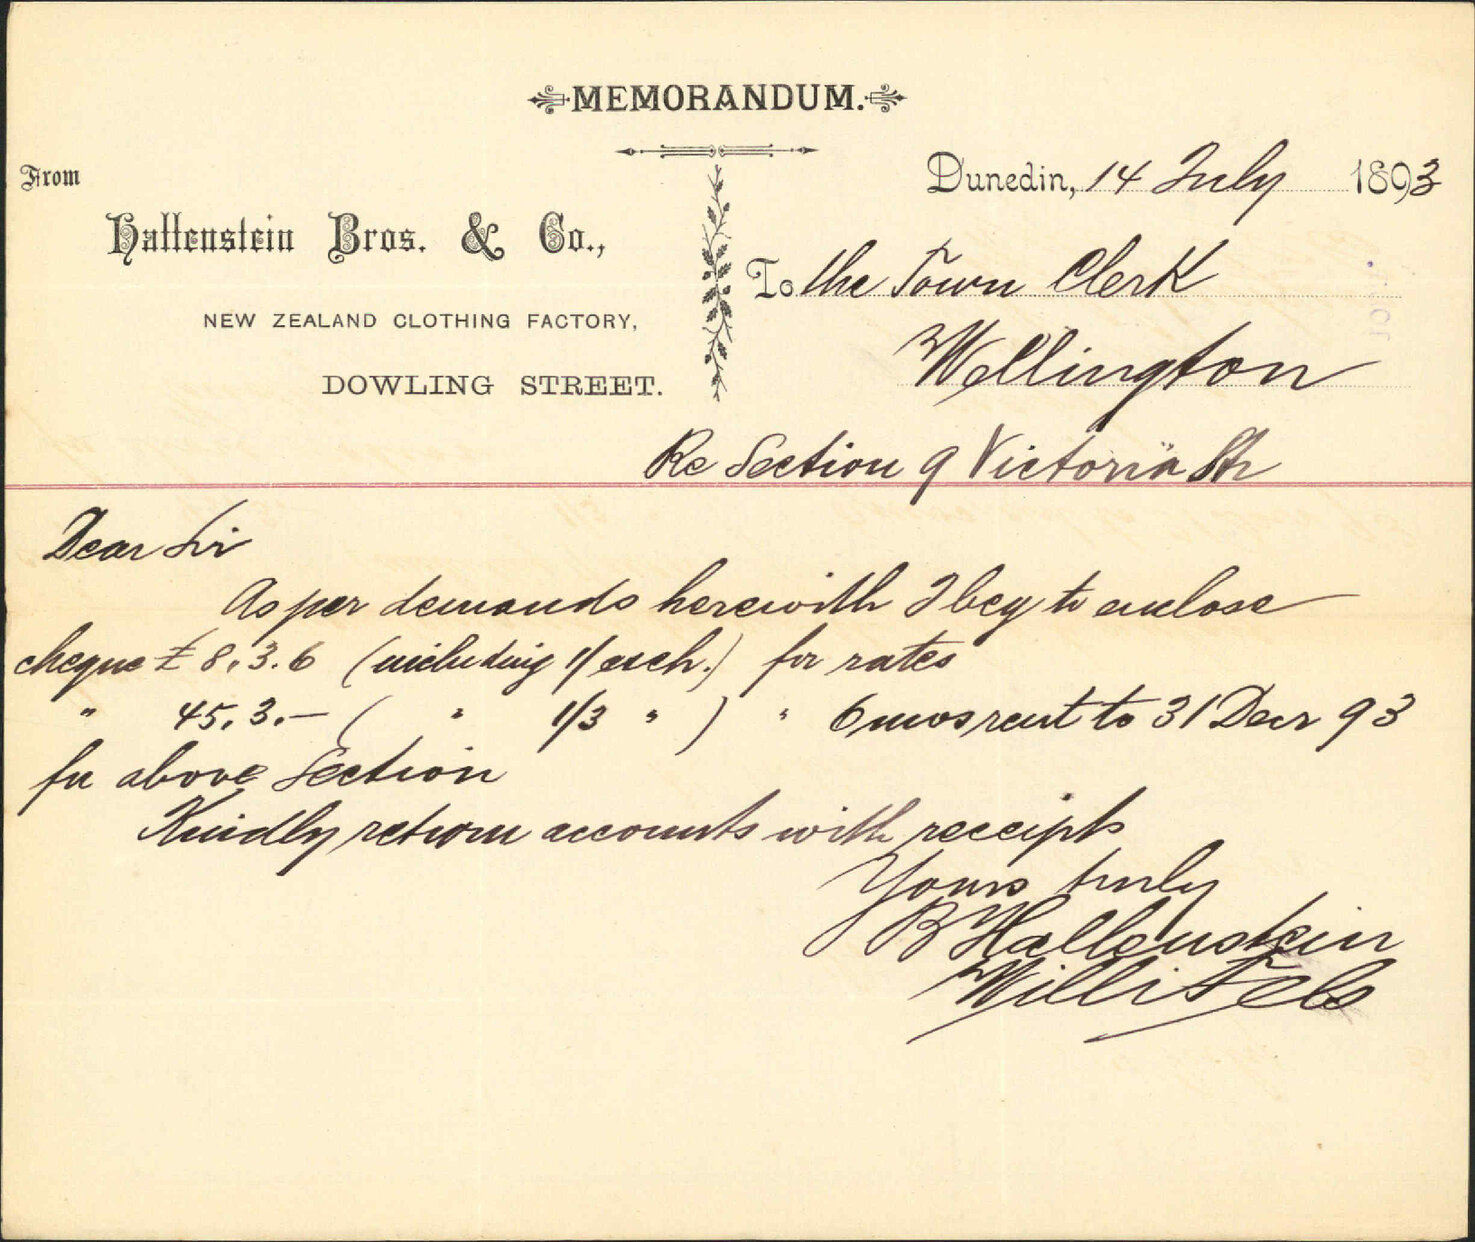 MEMORANDUM.
From
Hallenstein Bros. & Co.,
NEW ZEALAND CLOTHING FACTORY,
DOWLING STREET.
Dunedin, 14 July 1893
To the Town Clerk
Wellington
Re Section 9 Victoria Str
Dear Sir
As per demands herewith I beg to enclose
cheque £ 8.3.6 (including 1/ exch.) for rates
" 45.3.— ( " 1/3 " ) " 6 mos rent to 31 Decr 93
for above Section
Kindly return accounts with receipts
Yours truly
B Hallenstein
Willi Fels